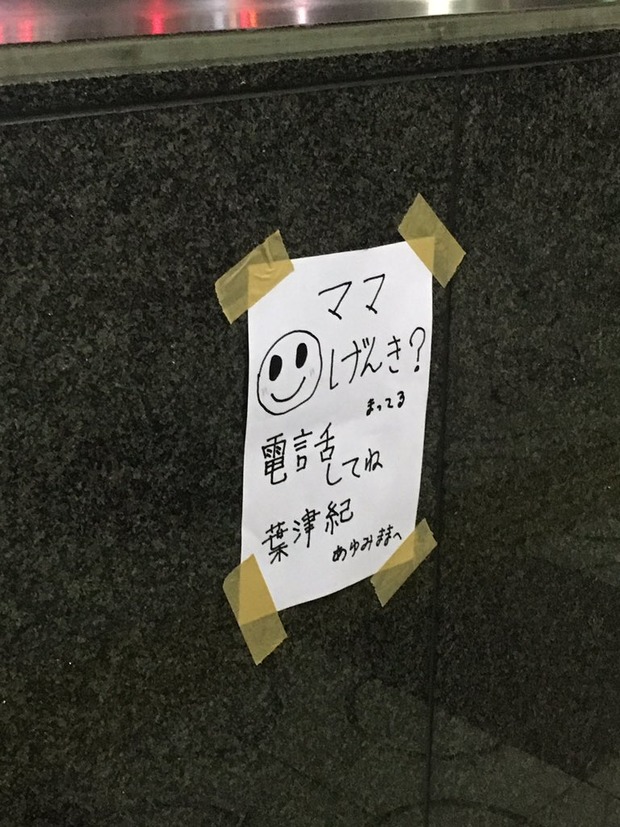 ママ
げんき?
まってる
電話
してね
葉津紀
あゆみままへ